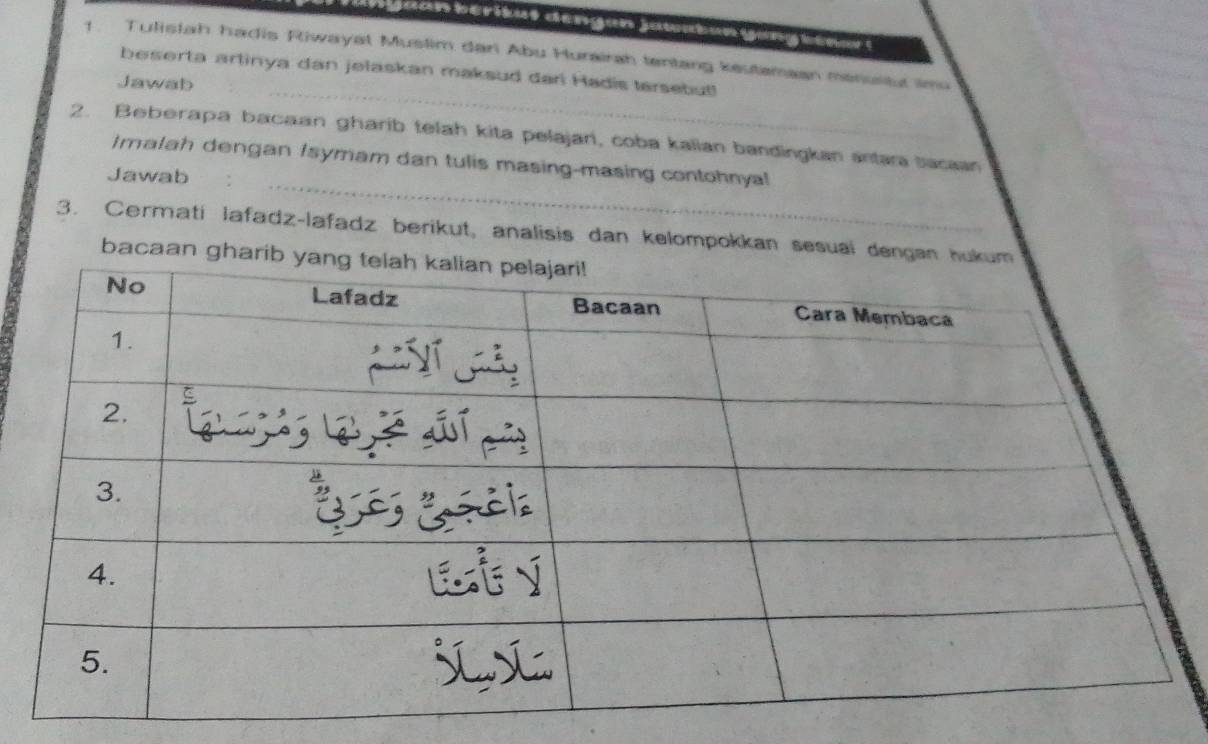 berikut dengan jawaban yang benar!
1. Tulislah hadis Riwayat Muslim dari Abu Hurairah tentang keutamaan menuntut ilmu
beserta artinya dan jelaskan maksud dari Hadis tersebut!
Jawab
2. Beberapa bacaan gharib telah kita pelajari, coba kalian bandingkan antara bacaan
Imalah dengan Isymam dan tulis masing-masing contohnya!
Jawab :
3. Cermati lafadz-lafadz berikut, analisis dan kelompokkan sesuai dengan hukum
bacaan gharib yang telah kalian pelajari!
No Lafadz Bacaan Cara Membaca
1. بِئْسَ ٱلِٱسْمُ
2. بِسْمِ ٱللَّهِ مَجْر۪ىٰهَا وَمُرْسَىٰهَآ ۚ
3. ءَا۬عْجَمِىٌّ وَعَرَبِىٌّ ۗ
4. لَا تَأْمَ۫نَّا
5. سَلَاسِلَا۟